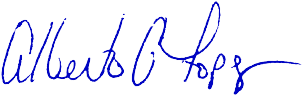 Alberto C Lopez